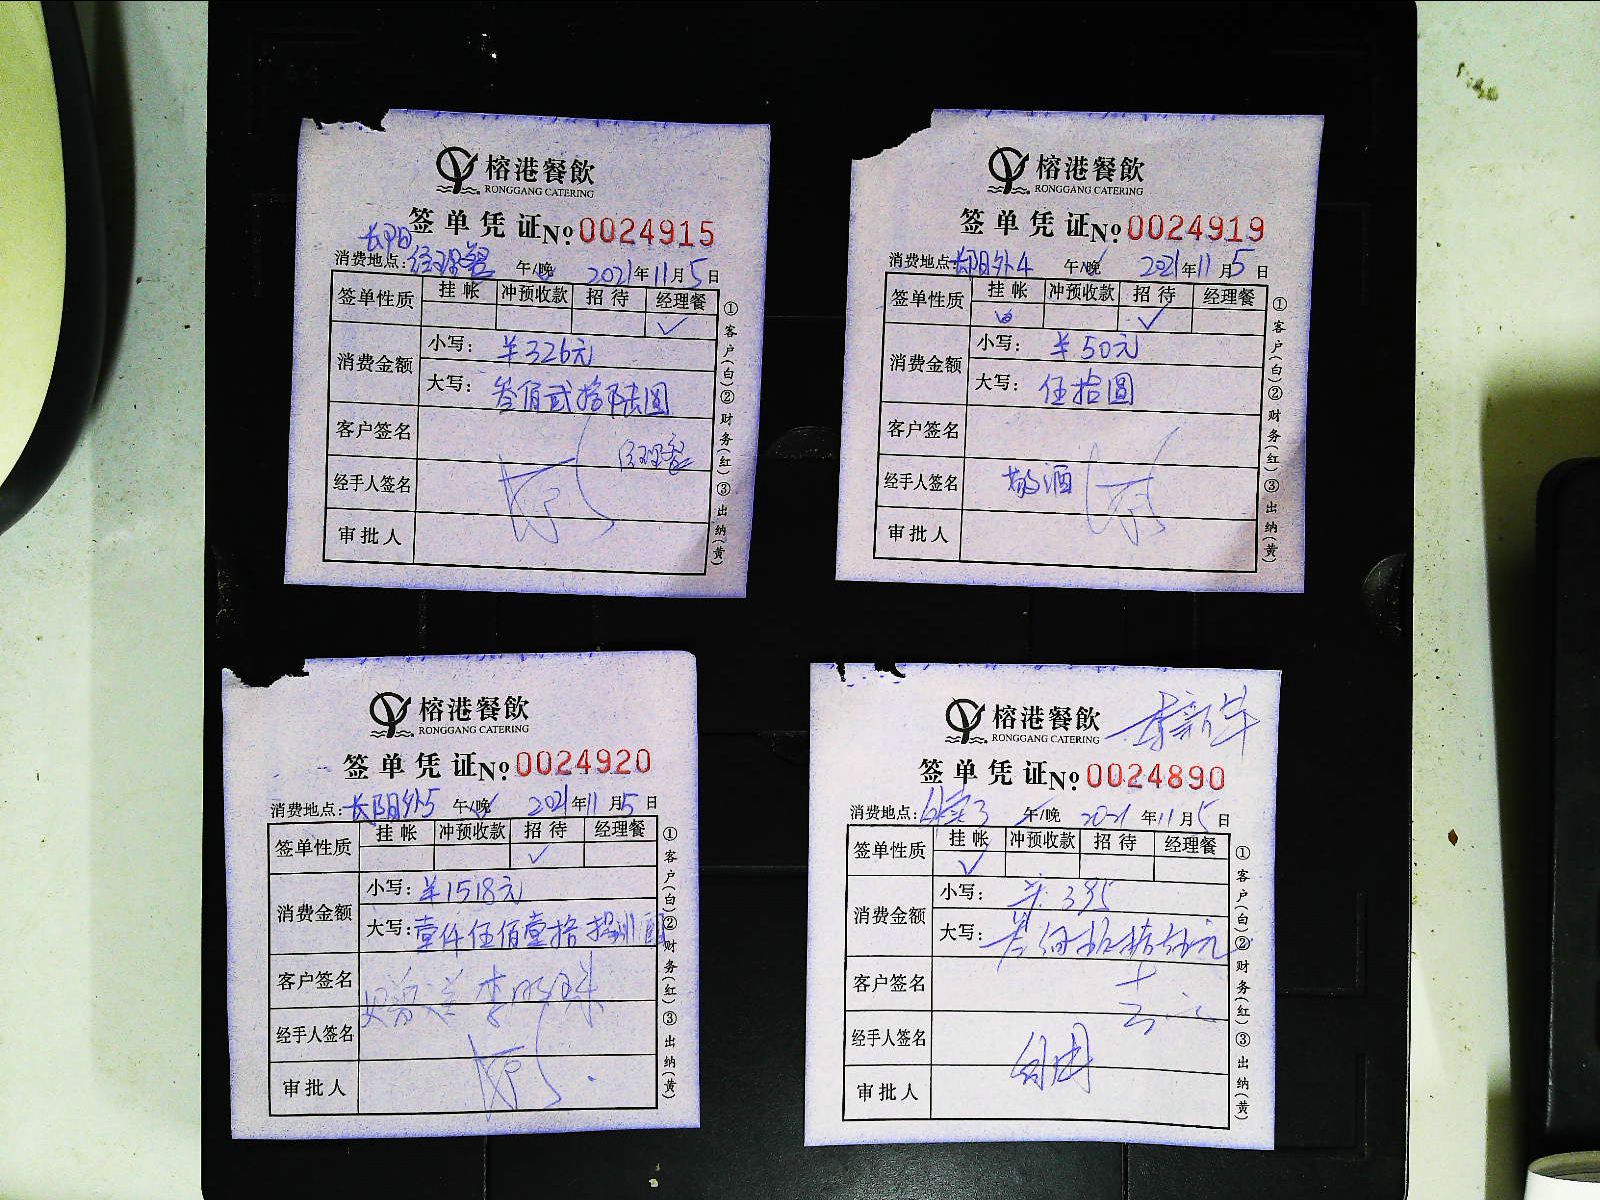 榕港餐飲
RONGGANG CATERING
签单凭证 No 0024915
长阳
消费地点: 经理餐 午/晚 2021年11月5日
签单性质 挂帐 冲预收款 招待 经理餐
✓
消费金额 小写: ¥326元
大写: 叁佰贰拾陆圆
客户签名
经理餐
经手人签名
审批人
①客户(白)②财务(红)③出纳(黄)
榕港餐飲
RONGGANG CATERING
签单凭证 No 0024919
消费地点: 长阳外4 午/晚 2021年11月5日
签单性质 挂帐 冲预收款 招待 经理餐
✓
消费金额 小写: ¥50元
大写: 伍拾圆
客户签名
经手人签名 敬酒
审批人
①客户(白)②财务(红)③出纳(黄)
榕港餐飲
RONGGANG CATERING
签单凭证 No 0024920
消费地点: 长阳外5 午/晚 2021年11月5日
签单性质 挂帐 冲预收款 招待 经理餐
✓
消费金额 小写: ¥1518元
大写: 壹仟伍佰壹拾捌圆
客户签名
经手人签名
审批人
①客户(白)②财务(红)③出纳(黄)
榕港餐飲
RONGGANG CATERING
签单凭证 No 0024890
消费地点: 午/晚 2021年11月5日
签单性质 挂帐 冲预收款 招待 经理餐
✓
消费金额 小写: ¥395
大写:
客户签名
经手人签名
审批人
①客户(白)②财务(红)③出纳(黄)